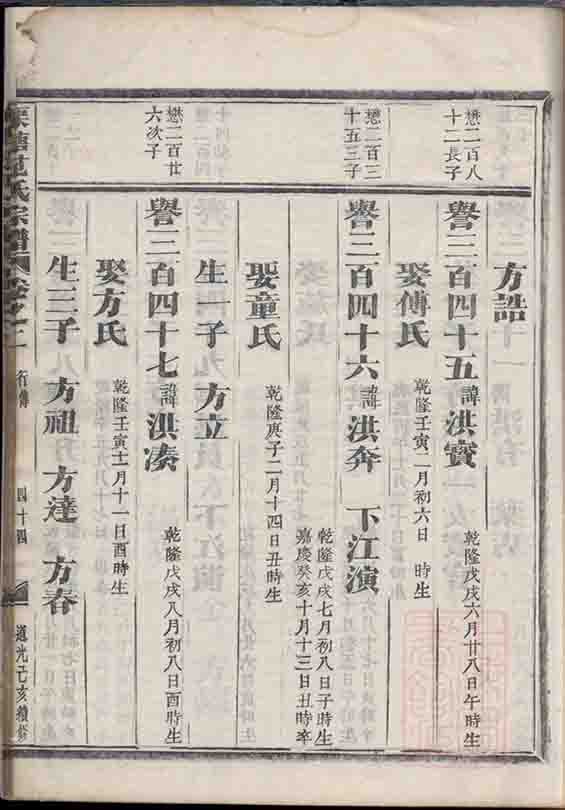 方誥
懋二百八
十二長子
譽二百四十五諱洪寶
乾隆戊戌六月廿八日午時生
娶傅氏
乾隆壬寅二月初六日 時生
懋二百三
十五三子
譽二百四十六諱洪奔 下江演
乾隆戊戌七月初八日子時生
嘉慶癸亥十月十三日丑時卒
娶童氏
乾隆庚子二月十四日丑時生
生一子 方立
懋二百廿
六次子
譽二百四十七諱洪湊
乾隆戊戌八月初八日酉時生
娶方氏
乾隆壬寅十一月十一日酉時生
生三子 方祖 方達 方春
氏宗譜 卷之二 行傳 四十四 道光己亥續修